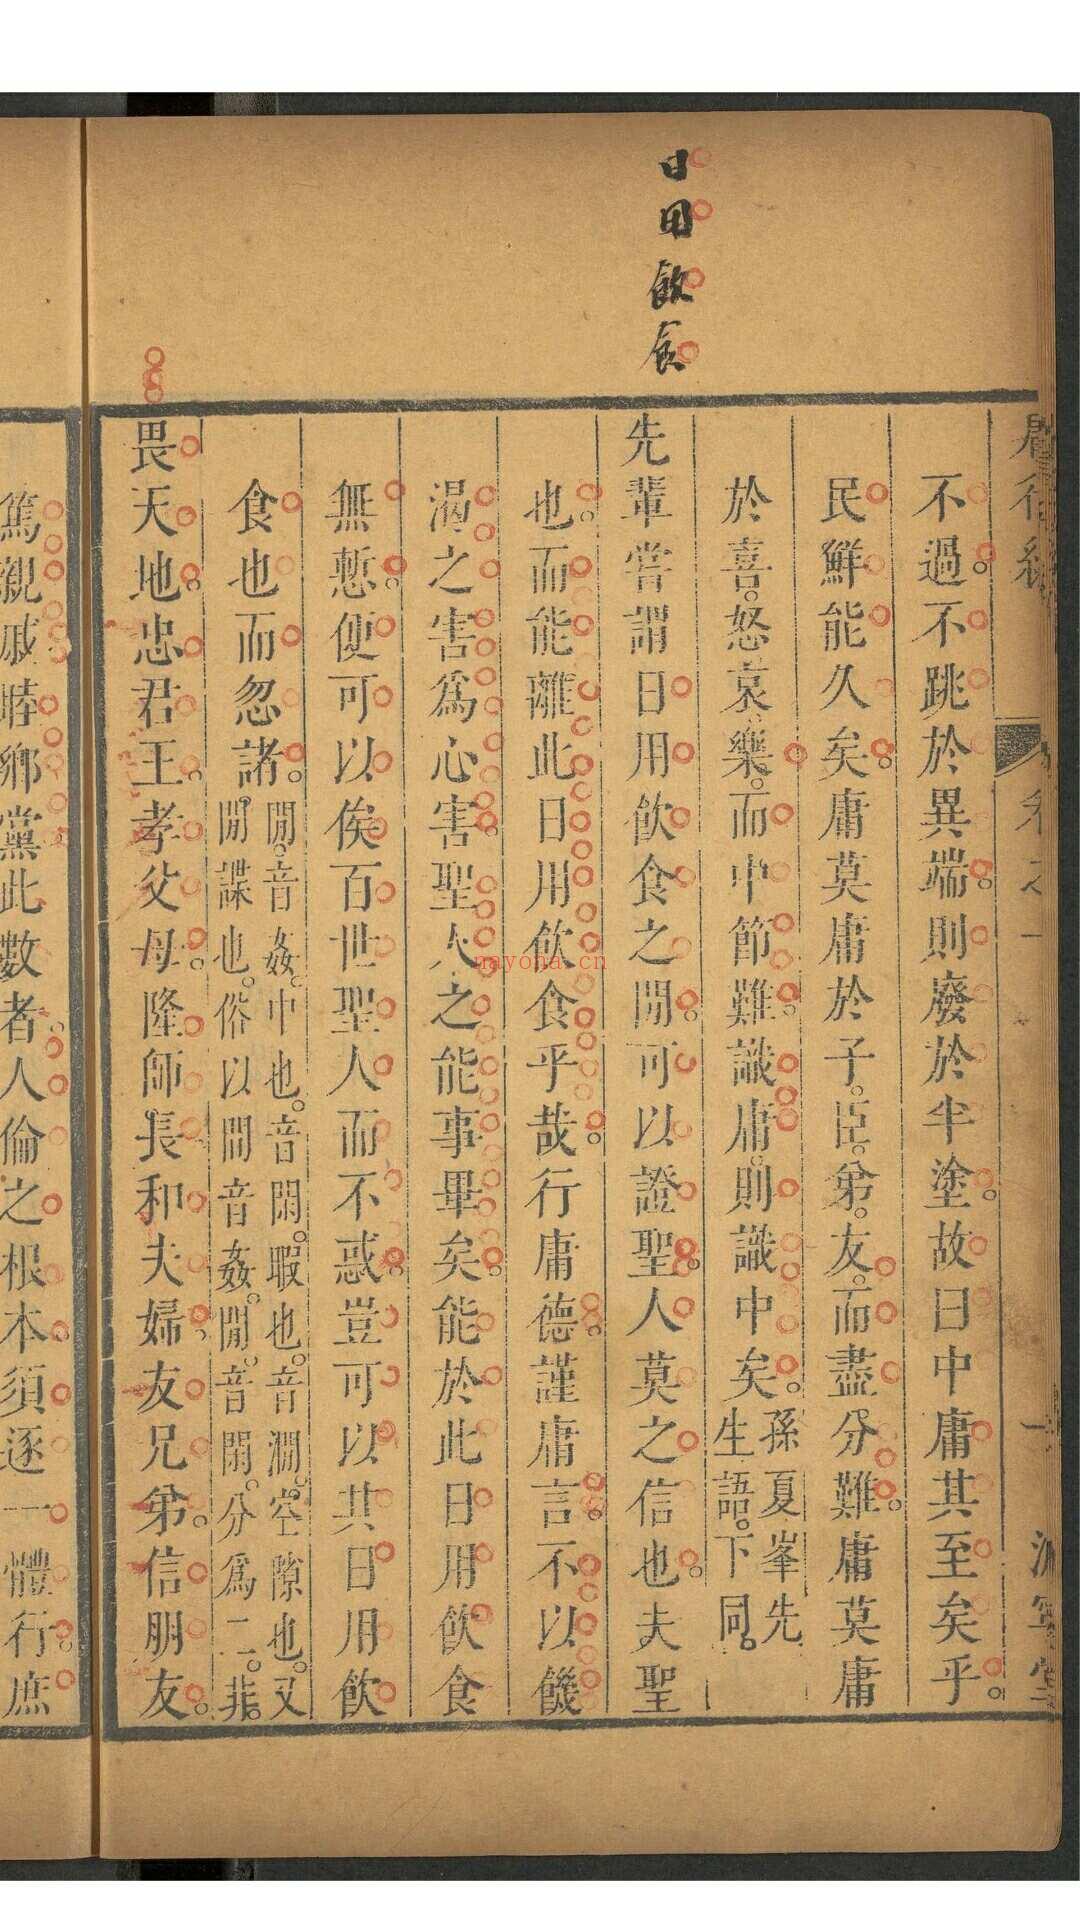 日用飲食
不過不跳於異端則廢於半塗故曰中庸其至矣乎
民鮮能久矣庸莫庸於子臣弟友而盡分難庸莫庸
於喜怒哀樂而中節難識庸則識中矣孫夏峯先
生語下同
先輩嘗謂日用飲食之閒可以證聖人莫之信也夫聖
也而能離此日用飲食乎哉行庸德謹庸言不以饑
渴之害爲心害聖人之能事畢矣能於此日用飲食
無慙便可以俟百世聖人而不惑豈可以其日用飲
食也而忽諸閒音姦中也音閑暇也音澗空隙也又
閒諜也俗以間音姦閒音閑分爲二非
畏天地忠君王孝父母隆師長和夫婦友兄弟信朋友
篤親戚睦鄉黨此數者人倫之根本須逐一體行庶
nayona.cn